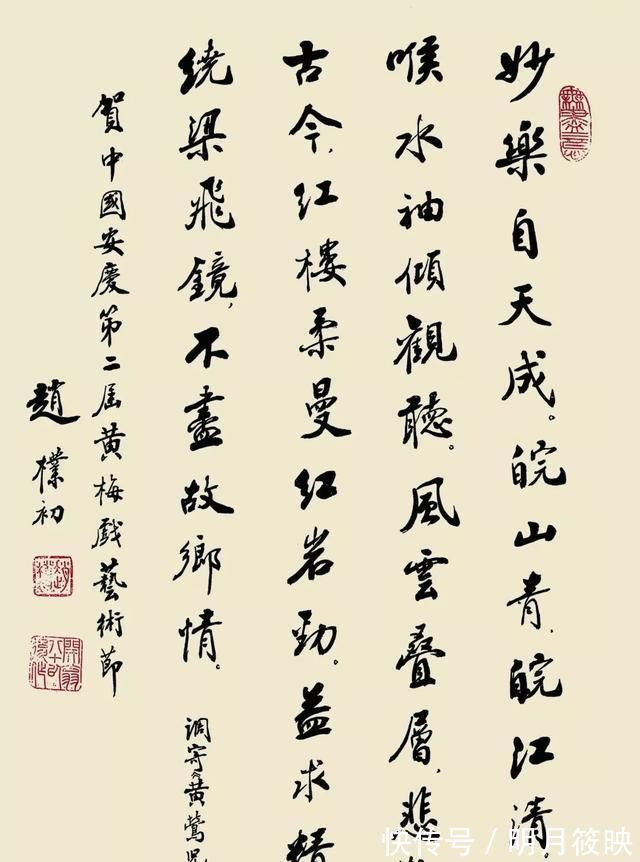 妙樂自天成。皖山青,皖江清。
喉水袖傾觀聽。風雲叠層,悲
古今,红樓柔曼红岩勁。益求精
绕梁飛鏡,不盡故鄉情。
调寄《黄鶯兒
賀中國安慶第二屆黄梅戲藝術節
趙樸初
快传号/明月筱映